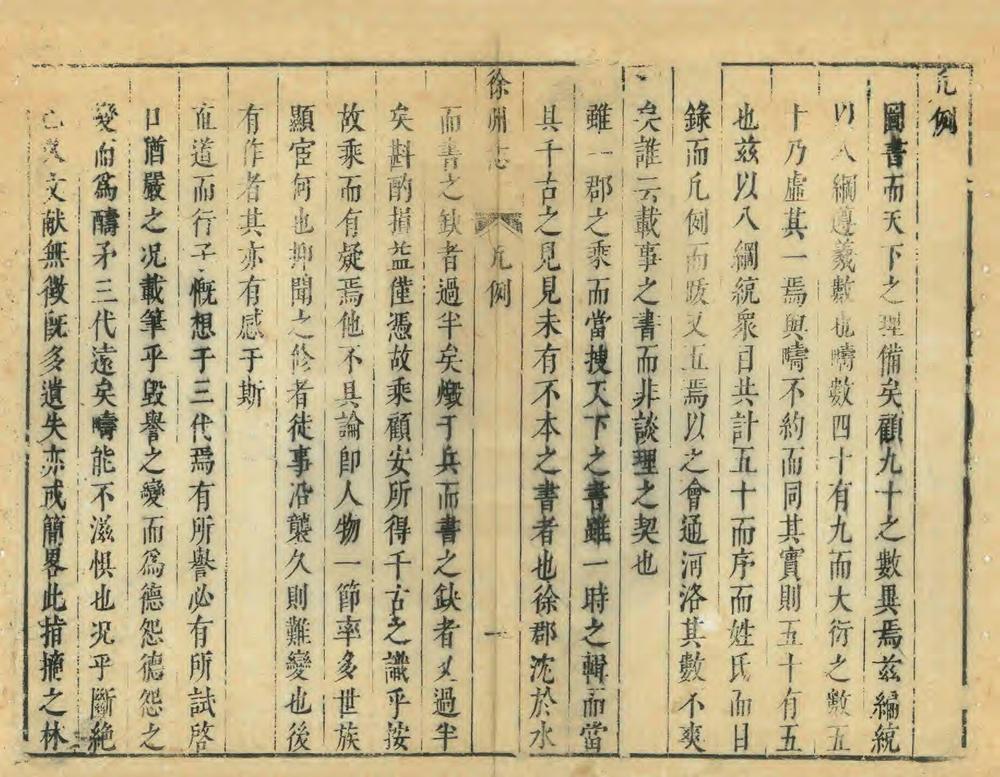 凡例
圖書而天下之理備矣顧九十之數異焉茲編統
以八綱遵羲數也疇數四十有九而大衍之數五
十乃虛其一焉與疇不約而同其實則五十有五
也茲以八綱統衆目共計五十而序而姓氏而目
錄而凡例而跋又五焉以之會通河洛其數不爽
矣誰云載事之書而非談理之契也
雖一郡之乘而當搜天下之書雖一時之輯而當
具千古之見見未有不本之書者也徐郡沈於水
徐州志 凡例 一
而書之缺者過半矣燬于兵而書之缺者又過半
矣斟酌損益僅憑故乘顧安所得千古之識乎按
故乘而有疑焉他不具論卽人物一節率多世族
顯宦何也抑聞之修者徒事沿襲久則難變也後
有作者其亦有感于斯
直道而行子慨想于三代焉有所譽必有所試啓
口猶嚴之况載筆乎毀譽之變而爲德怨德怨之
變而爲醻矛三代遠矣疇能不滋惧也况乎斷絶
文献無徴旣多遺失亦戒簡畧此指摘之林